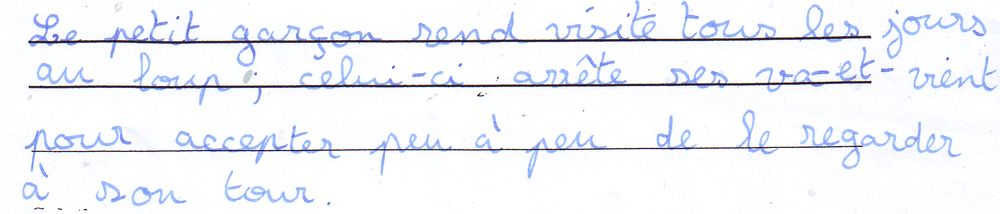 Le petit garçon rend visite tous les jours
au loup ; celui-ci arrête ses va-et-vient
pour accepter peu à peu de le regarder
à son tour.